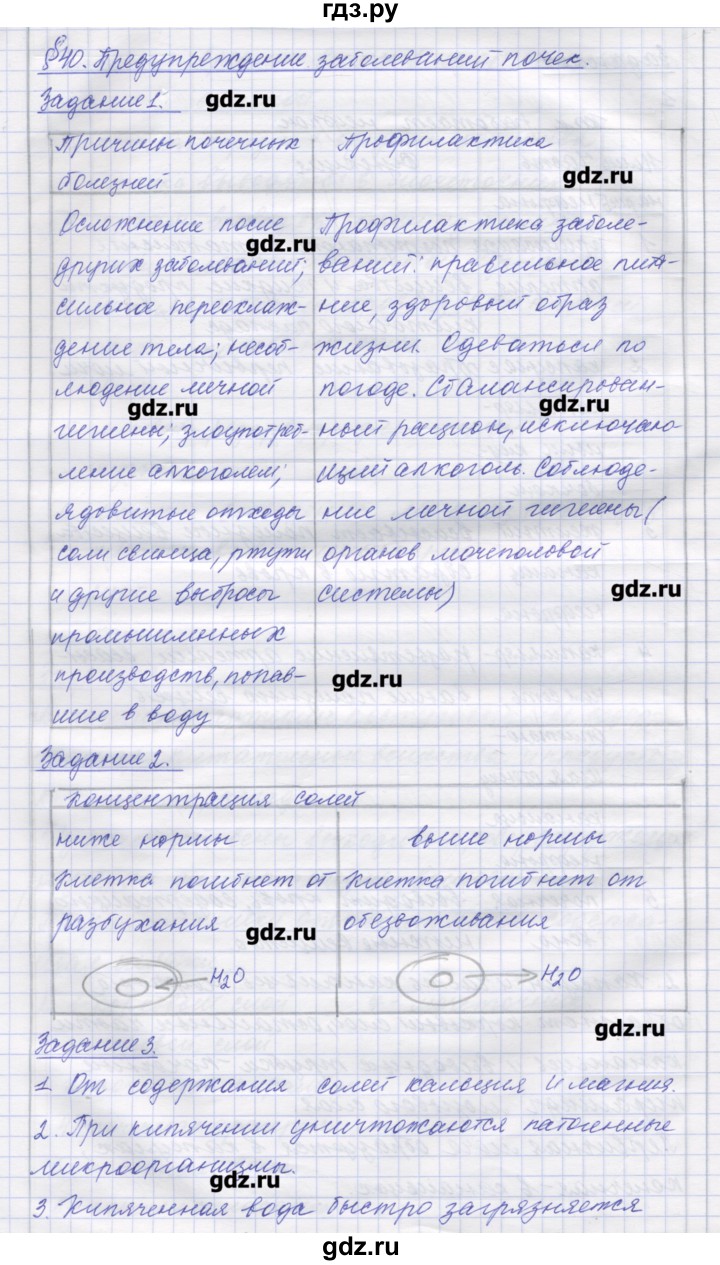 гдз.ру
§40. Предупреждение заболеваний почек.
Задание 1.
gdz.ru
Причины почечных
болезней
Профилактика
gdz.ru
Осложнение после
других заболеваний;
сильное переохлаж-
дение тела; несоб-
людение личной
гигиены; злоупотреб-
ление алкоголем;
ядовитые отходы
соли свинца, ртути
и другие выбросы
промышленных
производств, попав-
шие в воду
gdz.ru
gdz.ru
Профилактика заболе-
ваний: правильное пита-
ние, здоровый образ
жизни. Одеваться по
погоде. Сбалансирован-
ный рацион, исключаю-
щий алкоголь. Соблюде-
ние личной гигиены (
органов мочеполовой
системы)
gdz.ru
gdz.ru
gdz.ru
Задание 2.
Концентрация солей
ниже нормы
Клетка погибнет от
разбухания
H2O
выше нормы
Клетка погибнет от
обезвоживания
H2O
gdz.ru
gdz.ru
Задание 3.
1. От содержания солей кальция и магния.
2. При кипячении уничтожаются патогенные
микроорганизмы.
gdz.ru
3. Кипяченная вода быстро загрязняется
gdz.ru